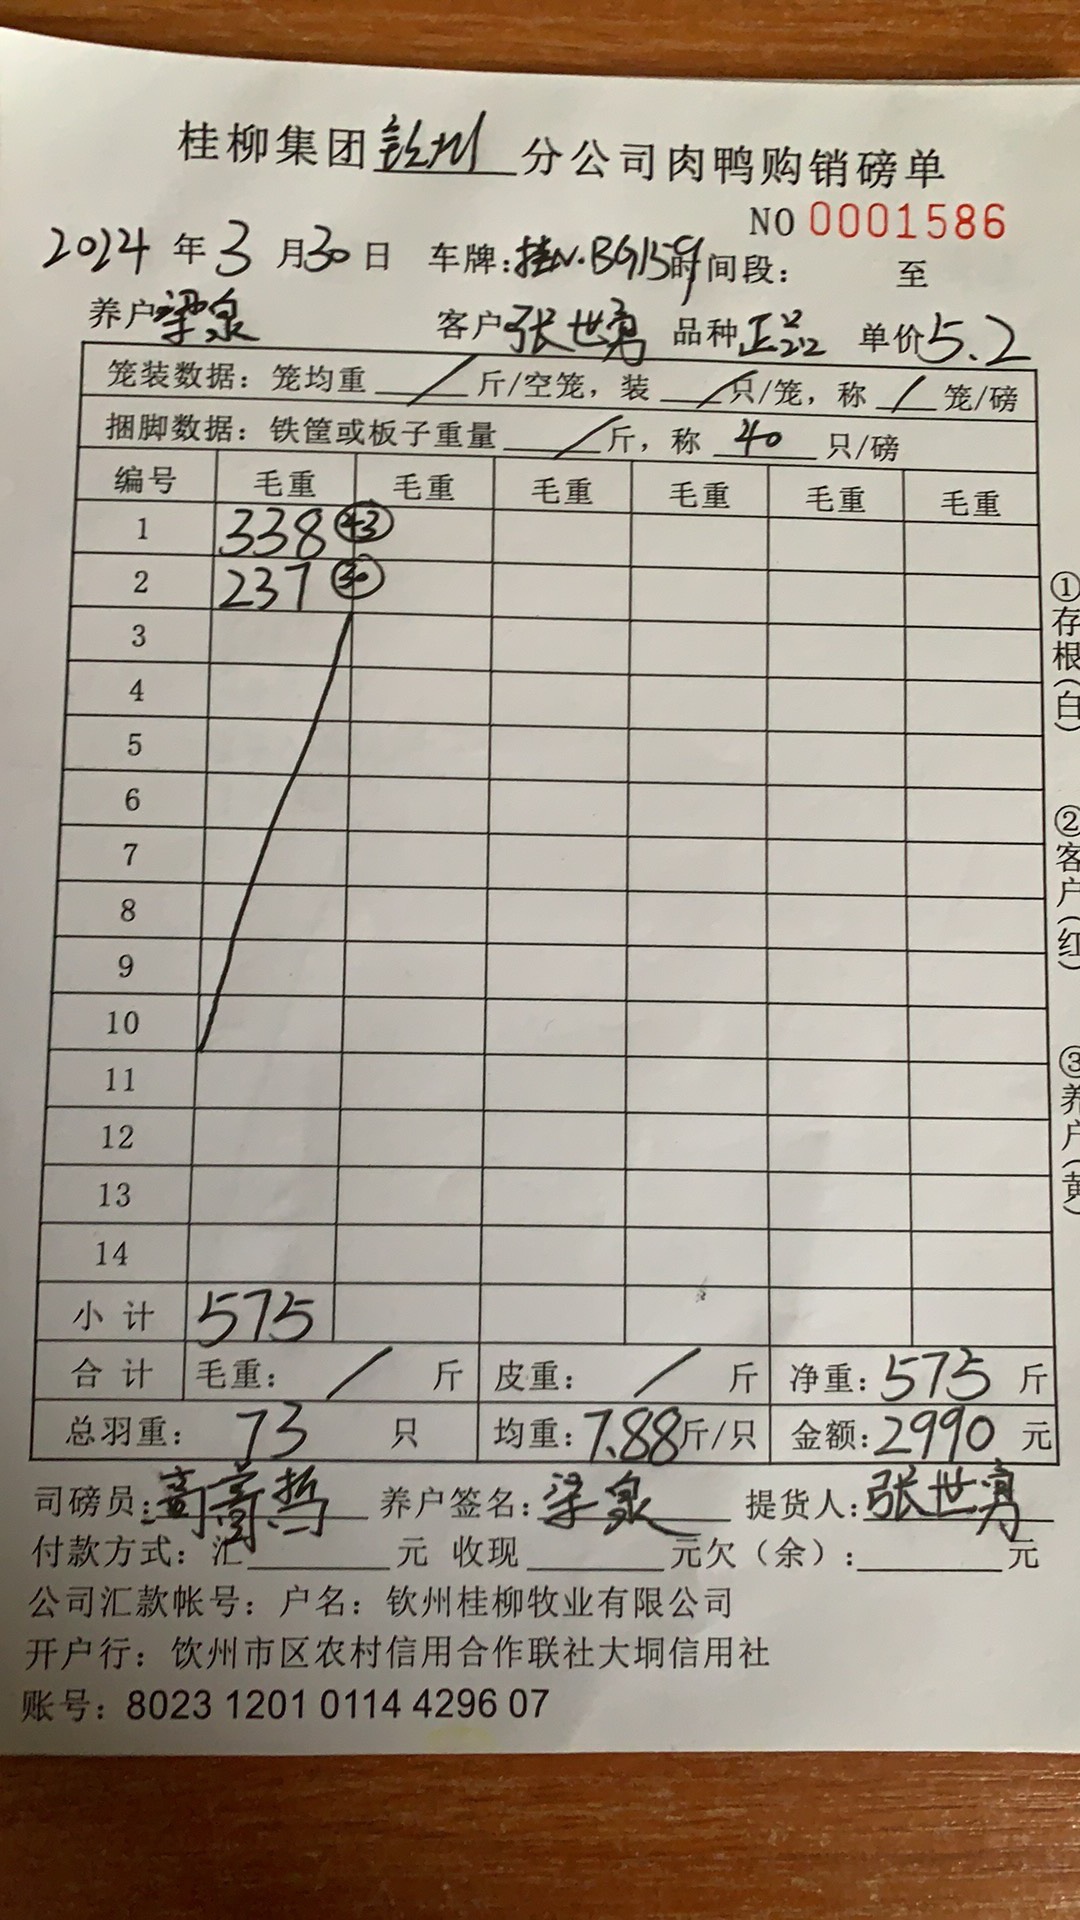 桂柳集团钦州分公司肉鸭购销磅单
NO 0001586
2024年3月30日 车牌:桂N·BG159 时间段: 至
养户梁泉 客户张世勇 品种正品 单价5.2
笼装数据：笼均重 / 斤/空笼，装 / 只/笼，称 / 笼/磅
捆脚数据：铁筐或板子重量 / 斤，称 40 只/磅
编号 毛重 毛重 毛重 毛重 毛重 毛重
1 338 43
2 237 30
3
4
5
6
7
8
9
10
11
12
13
14
小计 575
合计 毛重: / 斤 皮重: / 斤 净重:575斤
总羽重: 73 只 均重:7.88斤/只 金额:2990元
司磅员: 养户签名:梁泉 提货人:张世勇
付款方式：汇 元 收现 元欠（余）: 元
公司汇款帐号：户名：钦州桂柳牧业有限公司
开户行：钦州市区农村信用合作联社大垌信用社
账号：8023 1201 0114 4296 07
①存根(白)
②客户(红)
③养户(黄)